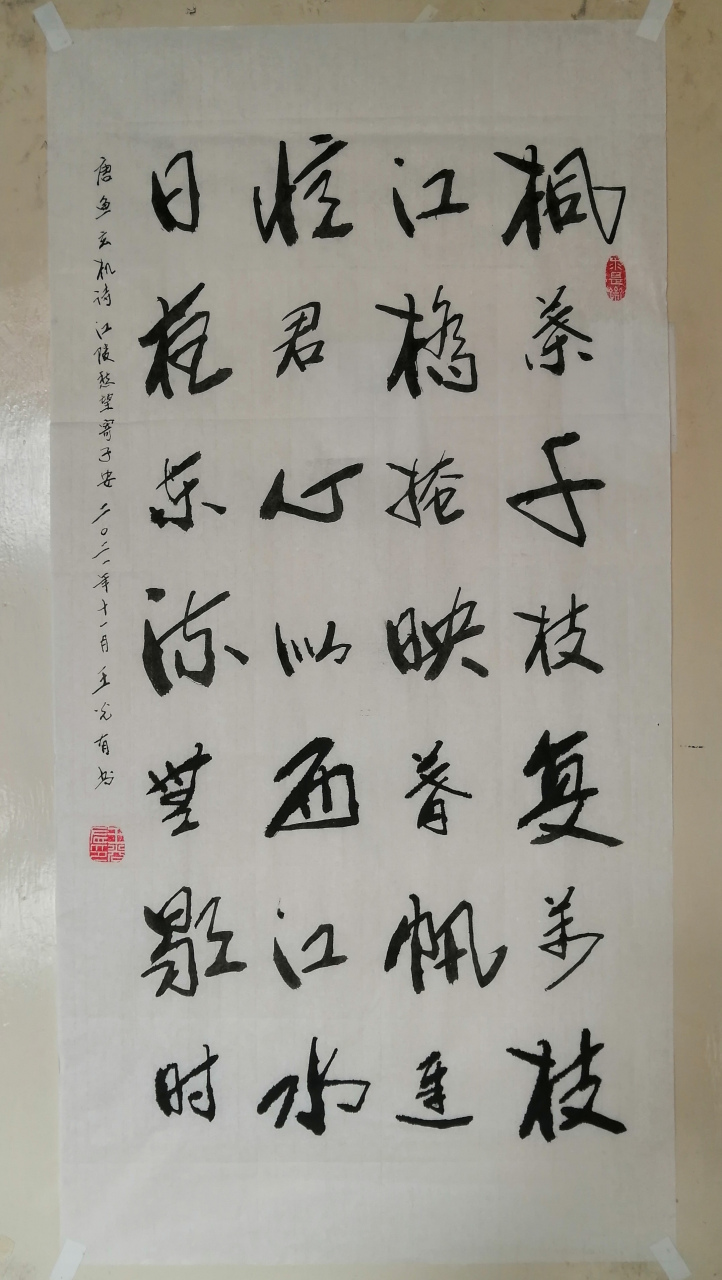 枫叶千枝复万枝
江桥掩映暮帆迟
忆君心似西江水
日夜东流无歇时
唐鱼玄机诗江陵愁望寄子安二〇二一年十一月王光有书